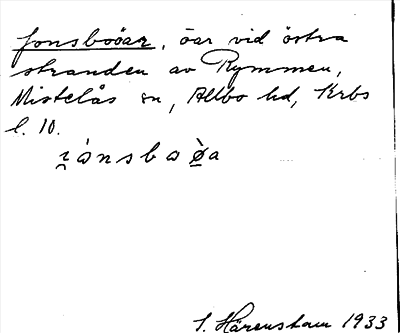 Jonsboöar, öar vid östra
stranden av Rymmen,
Mistelås sn, Allbo hd, Krbs
l. 10.
S. Härenstam 1933